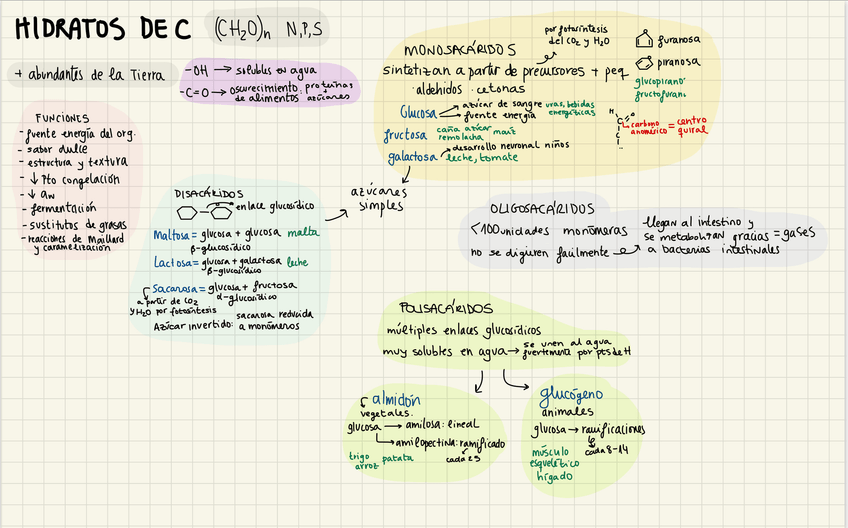 HIDRATOS DE C (CH₂O)n N,P,S
+ abundantes de la Tierra
-OH → solubles en agua
-C=O → oscurecimiento de alimentos proteínas azúcares
FUNCIONES
- fuente energía del org.
- sabor dulce
- estructura y textura
- ↓ Pto congelación
- ↓ aw
- fermentación
- sustitutos de grasas
- reacciones de Maillard
y caramelización
MONOSACÁRIDOS
por fotosíntesis
del CO₂ y H₂O
sintetizan a partir de precursores + peq
aldehidos · cetonas
Glucosa → azúcar de sangre uvas, bebidas
→ fuente energía energéticas
fructosa caña azúcar maíz
remolacha
galactosa → desarrollo neuronal niños
leche, tomate
furanosa
piranosa
glucopirano
fructofurano
H O
C
carbono = centro
anomérico quiral
azúcares
simples
DISACÁRIDOS
enlace glucosídico
Maltosa = glucosa + glucosa malta
β-glucosídico
Lactosa = glucosa + galactosa leche
β-glucosídico
Sacarosa = glucosa + fructosa
α-glucosídico
a partir de CO₂
y H₂O por fotosíntesis
sacarosa reducida
Azúcar invertido: a monómeros
OLIGOSACÁRIDOS
<100 unidades monómeras
no se digieren facilmente →
llegan al intestino y
se metabolizan gracias = gases
a bacterias intestinales
POLISACÁRIDOS
múltiples enlaces glucosídicos
muy solubles en agua → se unen al agua
fuertemente por ptes de H
almidón
vegetales.
glucosa → amilosa: lineal
→ amilopectina: ramificado
cada 25
trigo patata
arroz
glucógeno
animales
glucosa → ramificaciones
cada 8-14
músculo
esquelético
hígado